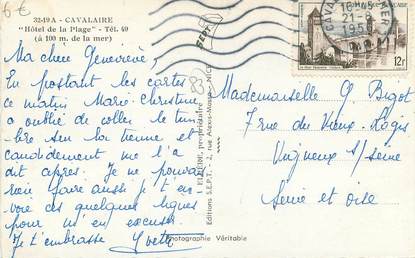 6€
32-19 A - CAVALAIRE
"Hôtel de la Plage" - Tél. 49
(à 100 m. de la mer)
Ma chère Geneviève,
En postant les cartes
ce matin Marie Christine
a oublié de coller le tim
bre sur la tienne et
candidement me l'a
dit après. Je ne pouvais
faire aussi je t'en
voie ces quelques lignes
pour m'en excuser
Je t'embrasse Yvette
propriétaire
Editions S.E.P.T. - 2, rue Alexis-Mossa, NICE
SEPT
Photographie Véritable
CAVALAIRE
16H45
21-8
195
12F
Mademoiselle G Bigot
7 rue du Vieux Logis
Vigneux s/ Seine
Seine et Oise